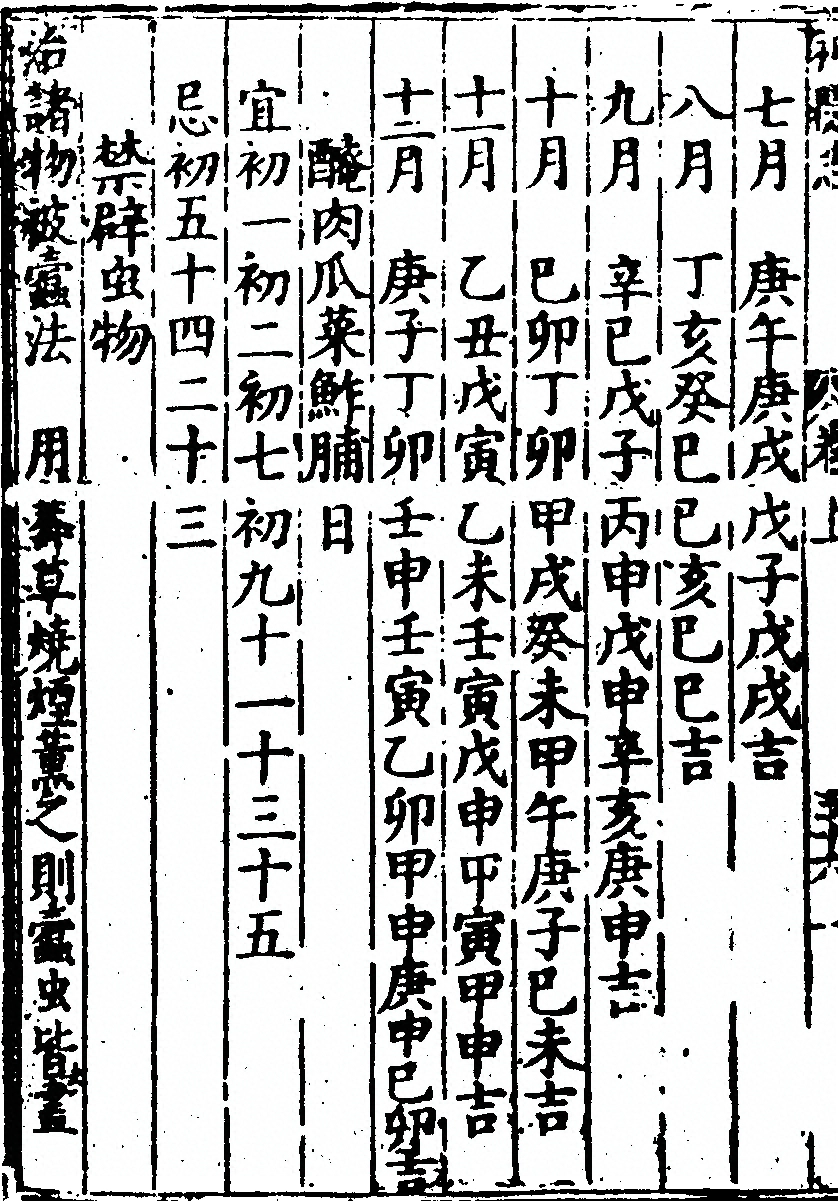 七月 庚午庚戌戊子戊戌吉
八月 丁亥癸巳巳亥巳巳吉
九月 辛巳戊子丙申戊申辛亥庚申吉
十月 巳卯丁卯甲戌癸未甲午庚子巳未吉
十一月 乙丑戊寅乙未壬寅戊申甲寅甲申吉
十二月 庚子丁卯壬申壬寅乙卯甲申庚申巳卯吉
醃肉瓜菜鮓脯日
宜初一初二初七初九十一十三十五
忌初五十四二十三
禁辟虫物
治諸物被蠹法 用莽草燒煙薰之則蠹虫皆去盡